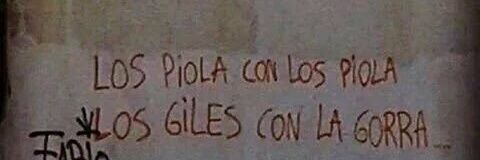 LOS PiOLA CON LOS PiOLA
LOS GiLES CON LA GORRA...